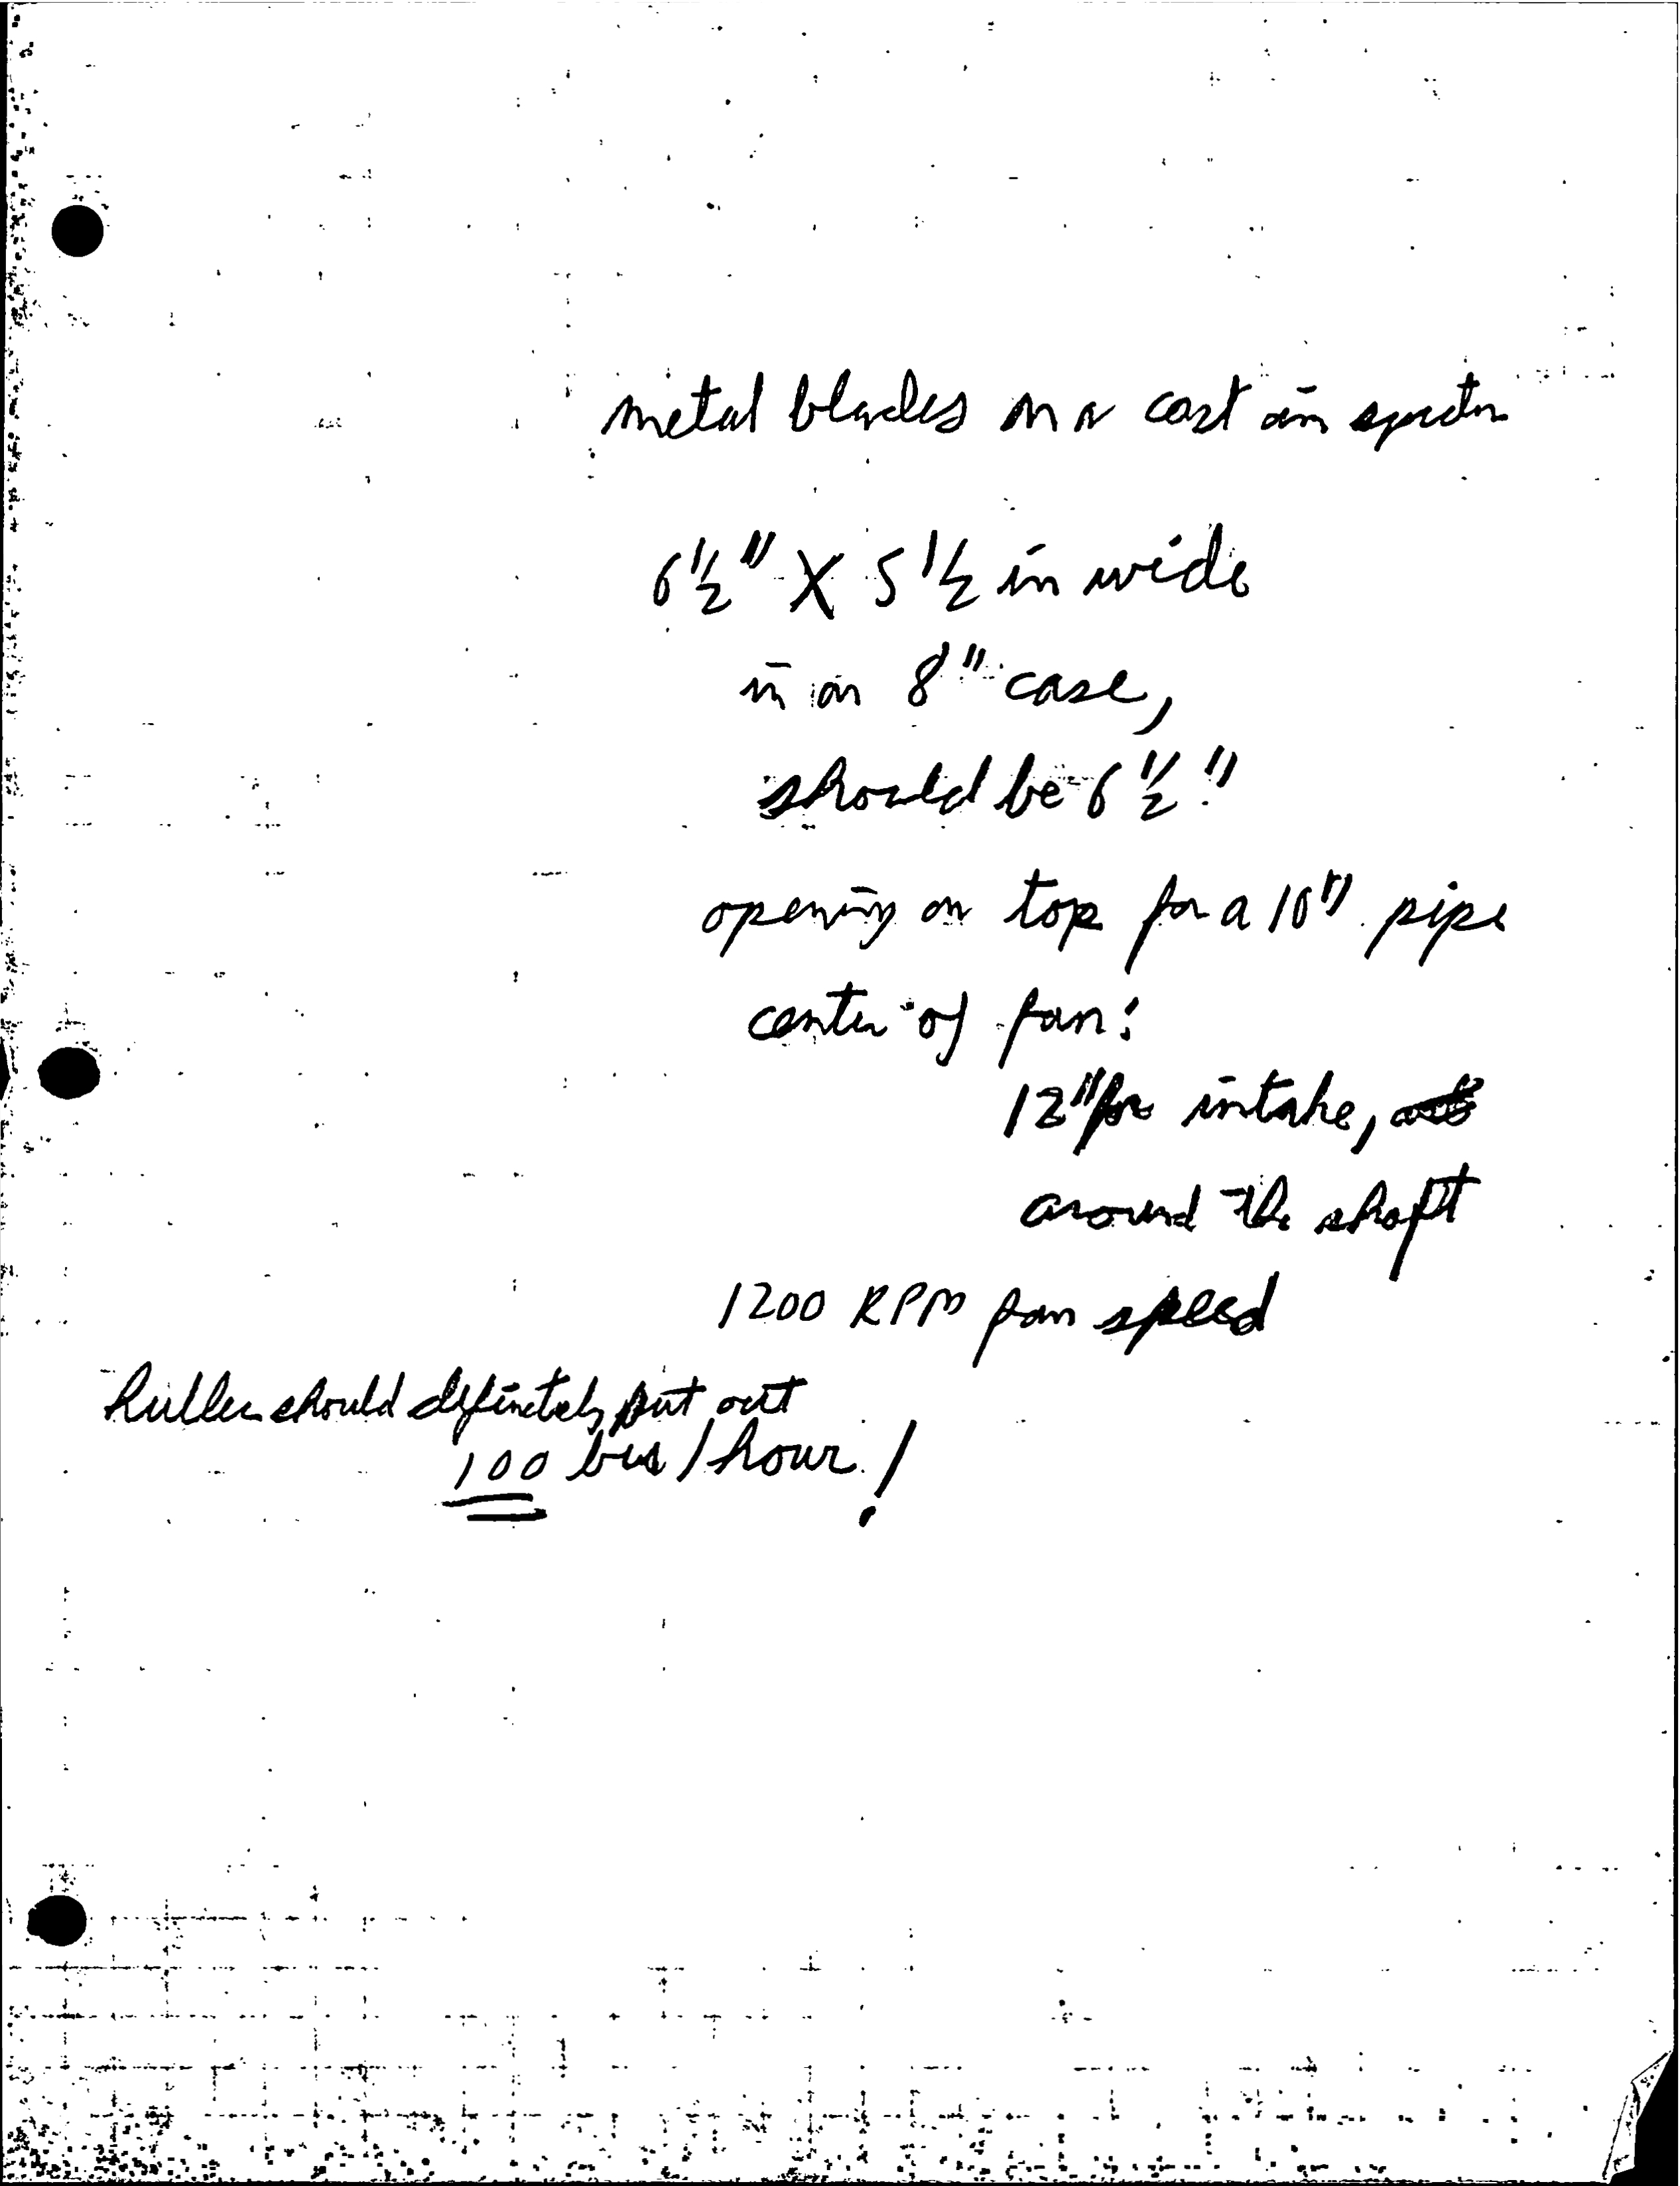 metal blades on a cast iron
6 1/2" X 5 1/2 in wide
in an 8" case,
should be 6 1/2"
opening on top for a 10" pipe
center of fan:
12" for intake,
around the shaft
1200 RPM fan speed
huller should definitely put out
100 bus/hour!